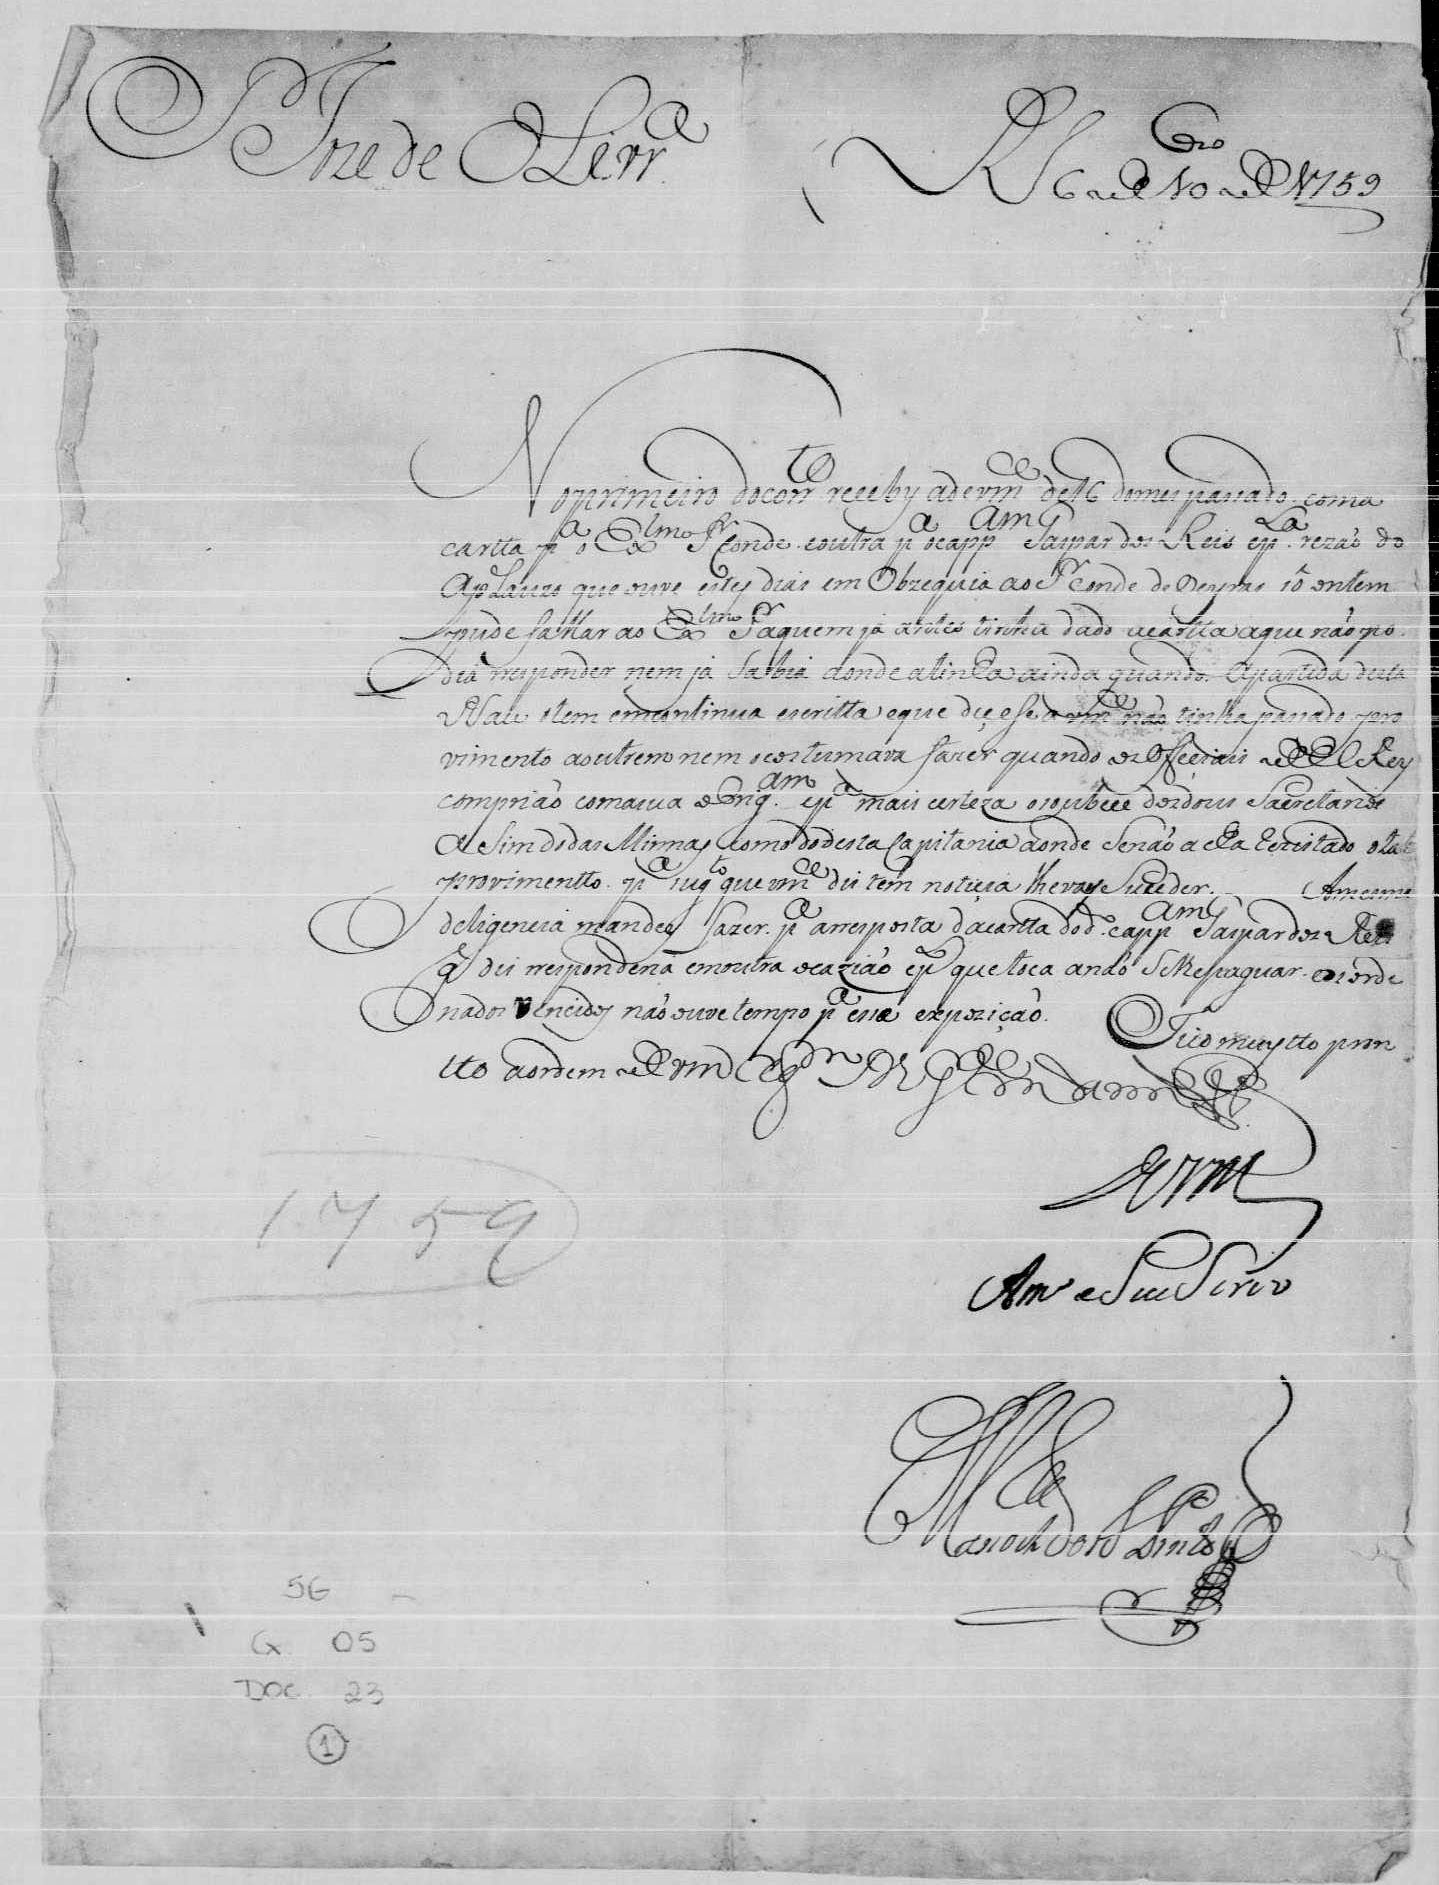 S Joze de OLivrª
R 6 de 10bro de 1759
No primeiro do corrto receby a de vmce de 16 do mes passado com a
cartta pª o Exlmo Sr Conde e outra pª o cappam Gaspar dos Reis e pla rezaõ do
Aplauzo que ouve estes dias em Obzequio ao Sr Conde de Oeyras só ontem
pude fallar ao Exlmo Sr a quem já antes tinha dado a cartta a que não po
dia responder nem já sabia donde a tinha ainda quando a partida desta
Nau o tem em continua escritta e que diçese a vmce não tinha passado pro
vimento a outrem nem o costumava fazer quando os Officiais de El Rey
comprião com a sua obrigam e pª mais certeza o soube dos dous Sacretarios
aSim do das Minnas como do desta Capitania donde se não acha Rezistado o tal
provimentto pª sugto que vmce dis tem noticia lhe vay Suceder. A mesma
deligencia mandey fazer pª a resposta da cartta do d. cappam Gaspar dos Reis
q̃ dis responderá em outra ocazião e plo que toca a não Se lhe pagar os orde
nados vencidos não ouve tempo pª essa expozição. Fico muytto pron
tto a ordem de vmce q Ds gde m annos
De Vm
Amo e Seu Servor
Manoel dos Santos
1759
56
G 05
DOC. 23
1